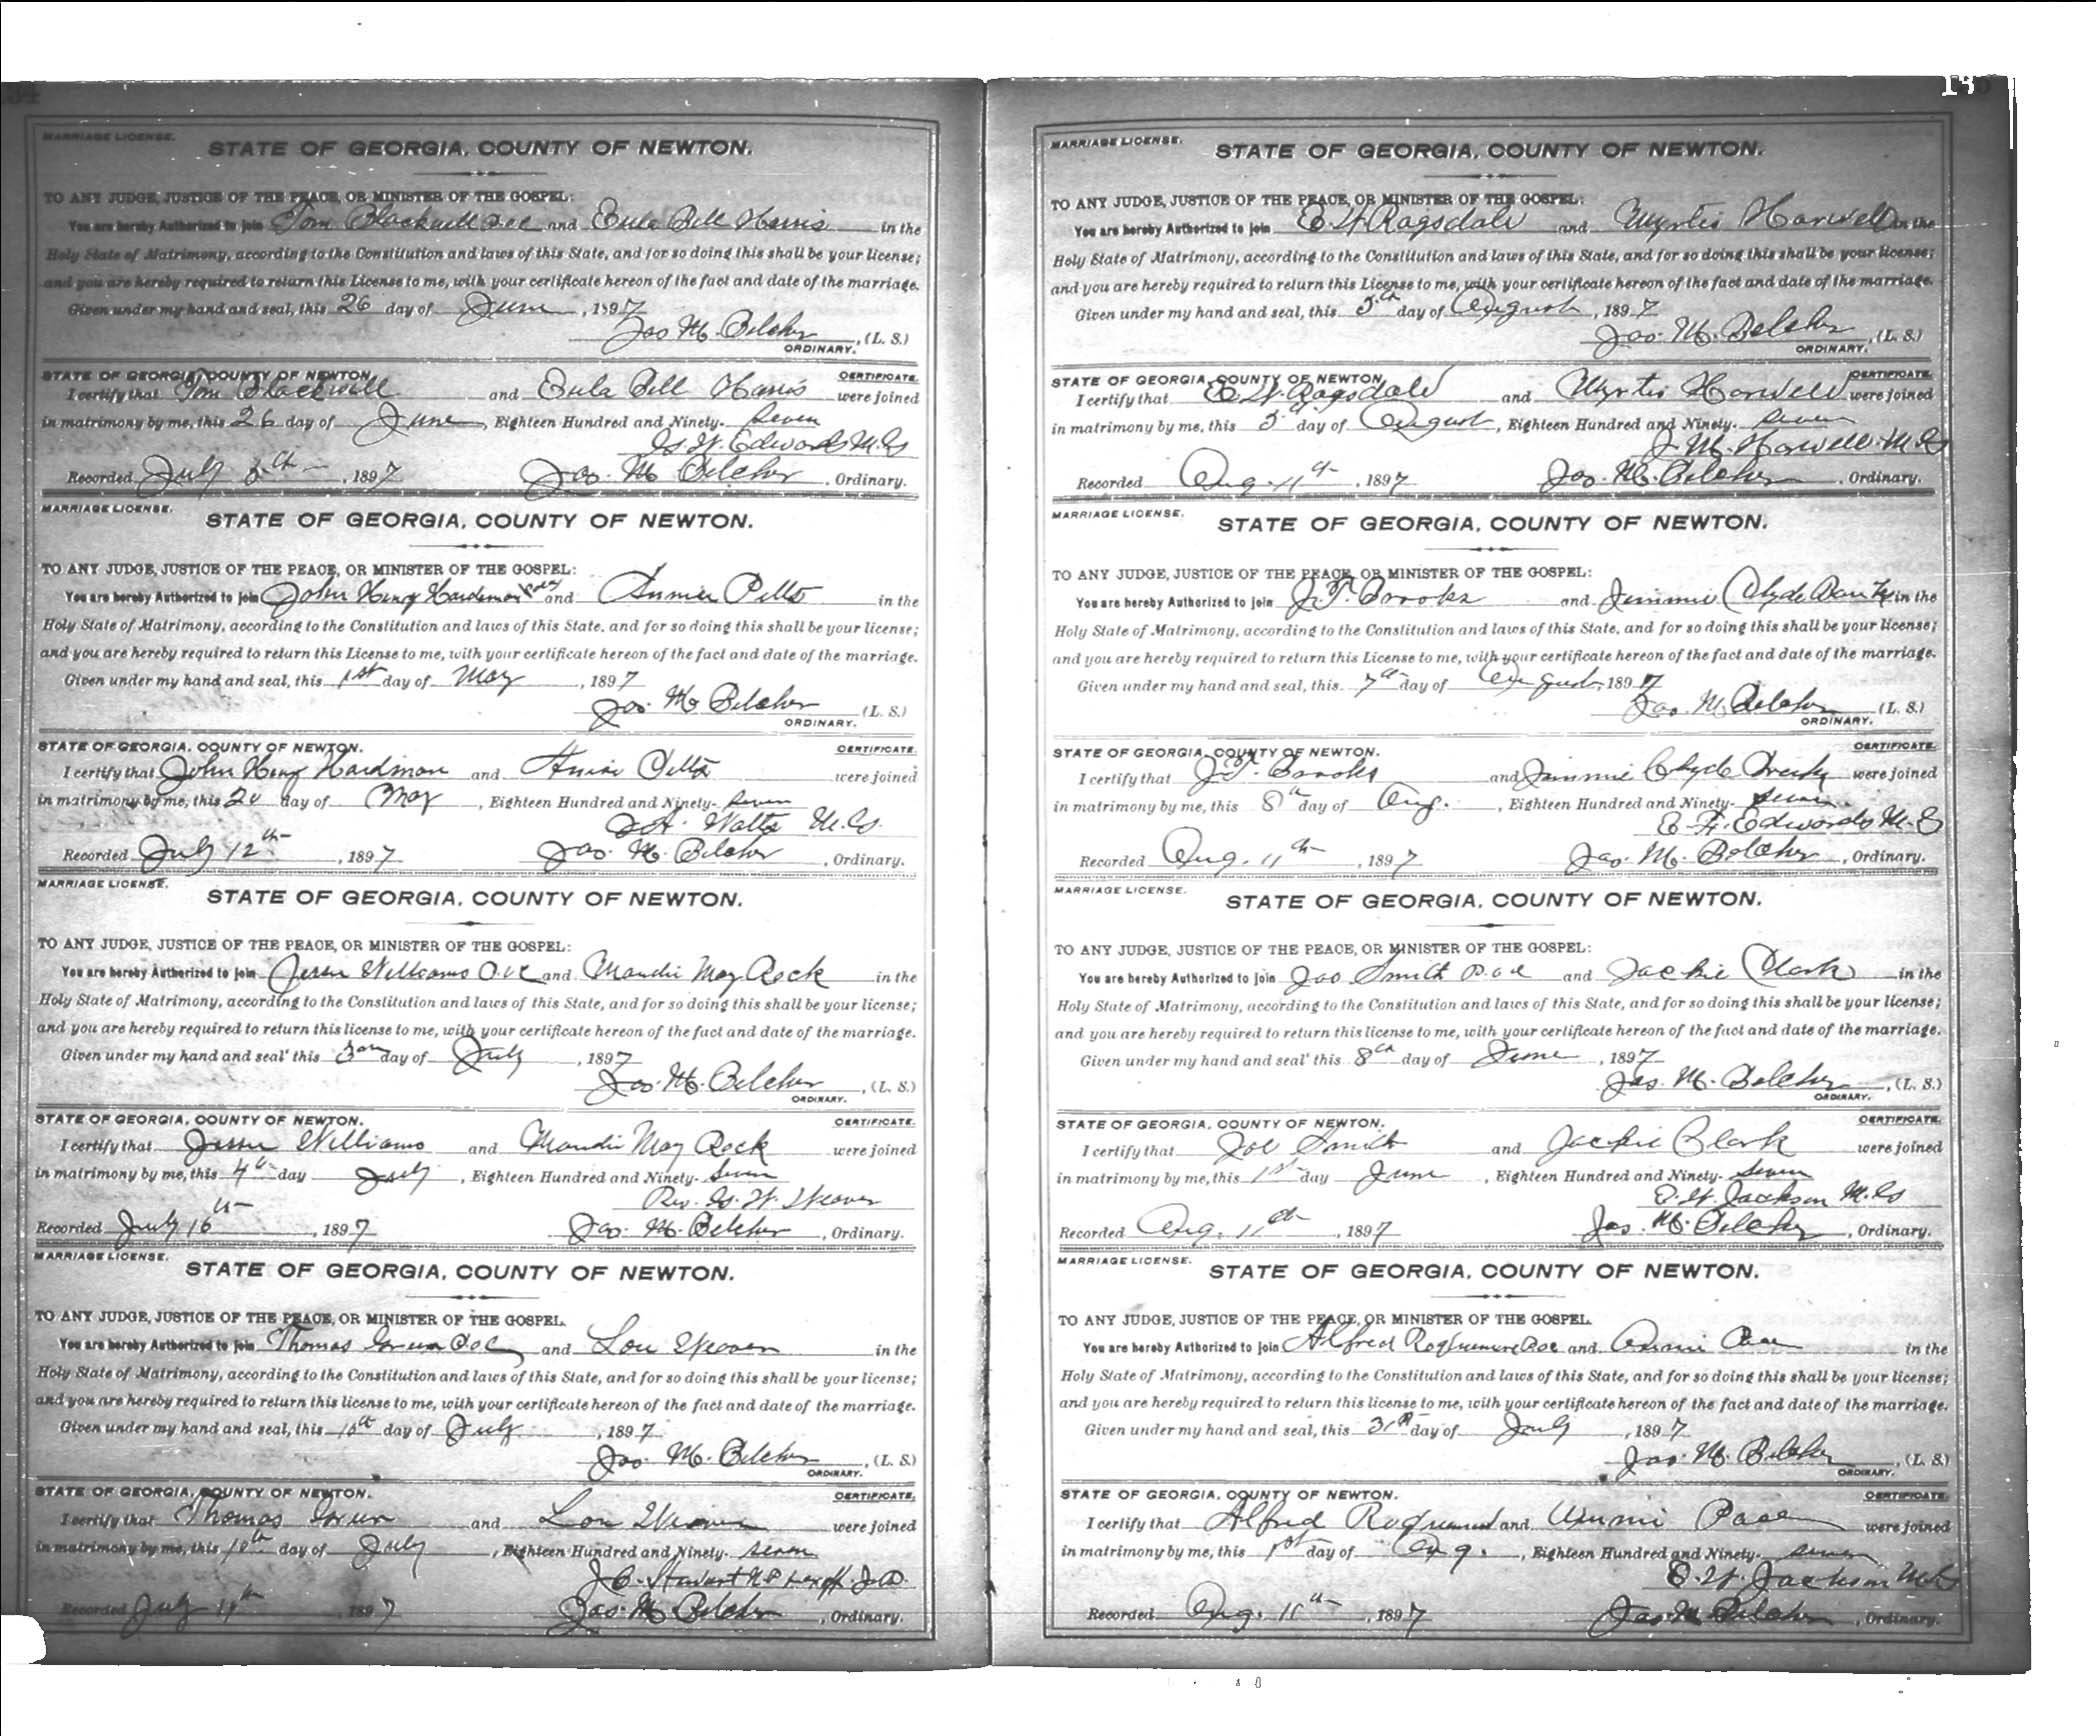 MARRIAGE LICENSE.
STATE OF GEORGIA, COUNTY OF NEWTON.
TO ANY JUDGE, JUSTICE OF THE PEACE, OR MINISTER OF THE GOSPEL:
You are hereby Authorized to join Tom Blackwell and Eula Bell Harris in the
Holy State of Matrimony, according to the Constitution and laws of this State, and for so doing this shall be your license;
and you are hereby required to return this License to me, with your certificate hereon of the fact and date of the marriage.
Given under my hand and seal, this 26 day of June, 1897
Jas M. Belcher, (L. S.)
ORDINARY.
STATE OF GEORGIA, COUNTY OF NEWTON. CERTIFICATE.
I certify that Tom Blackwell and Eula Bell Harris were joined
in matrimony by me, this 26 day of June, Eighteen Hundred and Ninety-seven
W. Edwards M.G.
Recorded July, 1897 Jas. M. Belcher, Ordinary.
MARRIAGE LICENSE.
STATE OF GEORGIA, COUNTY OF NEWTON.
TO ANY JUDGE, JUSTICE OF THE PEACE, OR MINISTER OF THE GOSPEL:
You are hereby Authorized to join John Henry Hardeman and Annie Pitts in the
Holy State of Matrimony, according to the Constitution and laws of this State, and for so doing this shall be your license;
and you are hereby required to return this License to me, with your certificate hereon of the fact and date of the marriage.
Given under my hand and seal, this 1st day of May, 1897
Jas. M. Belcher (L. S.)
ORDINARY.
STATE OF GEORGIA, COUNTY OF NEWTON. CERTIFICATE.
I certify that John Henry Hardman and Annie Pitts were joined
in matrimony by me, this 20 day of May, Eighteen Hundred and Ninety-seven
Watts M.G.
Recorded July 12th, 1897 Jas. M. Belcher, Ordinary.
MARRIAGE LICENSE.
STATE OF GEORGIA, COUNTY OF NEWTON.
TO ANY JUDGE, JUSTICE OF THE PEACE, OR MINISTER OF THE GOSPEL:
You are hereby Authorized to join Jesse Williams and Maudie May Rock in the
Holy State of Matrimony, according to the Constitution and laws of this State, and for so doing this shall be your license;
and you are hereby required to return this license to me, with your certificate hereon of the fact and date of the marriage.
Given under my hand and seal' this day of July, 1897
Jas. M. Belcher, (L. S.)
ORDINARY.
STATE OF GEORGIA, COUNTY OF NEWTON. CERTIFICATE.
I certify that Jesse Williams and Maudie May Rock were joined
in matrimony by me, this 4th day July, Eighteen Hundred and Ninety-seven
Rev. W. Weaver
Recorded July 16th, 1897 Jas. M. Belcher, Ordinary.
MARRIAGE LICENSE.
STATE OF GEORGIA, COUNTY OF NEWTON.
TO ANY JUDGE, JUSTICE OF THE PEACE, OR MINISTER OF THE GOSPEL.
You are hereby Authorized to join Thomas Green and Lou Weaver in the
Holy State of Matrimony, according to the Constitution and laws of this State, and for so doing this shall be your license;
and you are hereby required to return this license to me, with your certificate hereon of the fact and date of the marriage.
Given under my hand and seal, this 10th day of July, 1897
Jas. M. Belcher, (L. S.)
ORDINARY.
STATE OF GEORGIA, COUNTY OF NEWTON. CERTIFICATE.
I certify that Thomas Green and Lou Weaver were joined
in matrimony by me, this 10th day of July, Eighteen Hundred and Ninety-seven
J.C. Stewart
Recorded July, 1897 Jas. M. Belcher, Ordinary.
MARRIAGE LICENSE.
STATE OF GEORGIA, COUNTY OF NEWTON.
TO ANY JUDGE, JUSTICE OF THE PEACE, OR MINISTER OF THE GOSPEL:
You are hereby Authorized to join E. W. Ragsdale and Myrtis Harwell in the
Holy State of Matrimony, according to the Constitution and laws of this State, and for so doing this shall be your license;
and you are hereby required to return this License to me, with your certificate hereon of the fact and date of the marriage.
Given under my hand and seal, this 5th day of August, 1897
Jas. M. Belcher, (L. S.)
ORDINARY.
STATE OF GEORGIA, COUNTY OF NEWTON. CERTIFICATE.
I certify that E. W. Ragsdale and Myrtis Harwell were joined
in matrimony by me, this 5th day of August, Eighteen Hundred and Ninety-seven
J. M. Harwell M.G.
Recorded Aug. 11th, 1897 Jas. M. Belcher, Ordinary.
MARRIAGE LICENSE.
STATE OF GEORGIA, COUNTY OF NEWTON.
TO ANY JUDGE, JUSTICE OF THE PEACE, OR MINISTER OF THE GOSPEL:
You are hereby Authorized to join J. T. Brooks and Jimmie Clyde in the
Holy State of Matrimony, according to the Constitution and laws of this State, and for so doing this shall be your license;
and you are hereby required to return this License to me, with your certificate hereon of the fact and date of the marriage.
Given under my hand and seal, this 7th day of August, 1897
Jas. M. Belcher (L. S.)
ORDINARY.
STATE OF GEORGIA, COUNTY OF NEWTON. CERTIFICATE.
I certify that J. T. Brooks and Jimmie Clyde were joined
in matrimony by me, this 8th day of Aug., Eighteen Hundred and Ninety-seven
E. F. Edwards M.G.
Recorded Aug. 11th, 1897 Jas. M. Belcher, Ordinary.
MARRIAGE LICENSE.
STATE OF GEORGIA, COUNTY OF NEWTON.
TO ANY JUDGE, JUSTICE OF THE PEACE, OR MINISTER OF THE GOSPEL:
You are hereby Authorized to join Joe Smith and Jackie Clark in the
Holy State of Matrimony, according to the Constitution and laws of this State, and for so doing this shall be your license;
and you are hereby required to return this license to me, with your certificate hereon of the fact and date of the marriage.
Given under my hand and seal' this 8th day of June, 1897
Jas. M. Belcher, (L. S.)
ORDINARY.
STATE OF GEORGIA, COUNTY OF NEWTON. CERTIFICATE.
I certify that Joe Smith and Jackie Clark were joined
in matrimony by me, this 1st day June, Eighteen Hundred and Ninety-seven
E. W. Jackson M.G.
Recorded Aug. 11th, 1897 Jas. M. Belcher, Ordinary.
MARRIAGE LICENSE.
STATE OF GEORGIA, COUNTY OF NEWTON.
TO ANY JUDGE, JUSTICE OF THE PEACE, OR MINISTER OF THE GOSPEL.
You are hereby Authorized to join Alfred Roquemore and Annie Pace in the
Holy State of Matrimony, according to the Constitution and laws of this State, and for so doing this shall be your license;
and you are hereby required to return this license to me, with your certificate hereon of the fact and date of the marriage.
Given under my hand and seal, this 31st day of July, 1897
Jas. M. Belcher, (L. S.)
ORDINARY.
STATE OF GEORGIA, COUNTY OF NEWTON. CERTIFICATE.
I certify that Alfred and Annie Pace were joined
in matrimony by me, this 1st day of Aug., Eighteen Hundred and Ninety-seven
E. W. Jackson M.G.
Recorded Aug. 11th, 1897 Jas. M. Belcher, Ordinary.